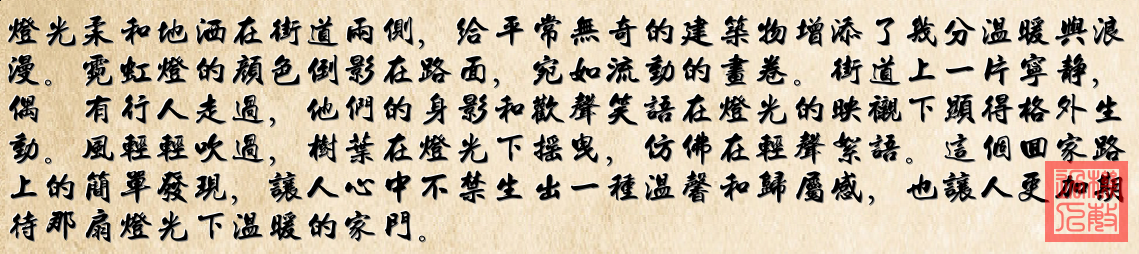 燈光柔和地洒在街道兩側，給平常無奇的建築物增添了幾分溫暖與浪
漫。霓虹燈的顏色倒影在路面，宛如流動的畫卷。街道上一片寧静，
偶 有行人走過，他們的身影和歡聲笑語在燈光的映襯下顯得格外生
動。風輕輕吹過，樹葉在燈光下摇曳，仿佛在輕聲絮語。這個回家路
上的簡單發現，讓人心中不禁生出一種溫馨和歸屬感，也讓人更加期
待那扇燈光下溫暖的家門。